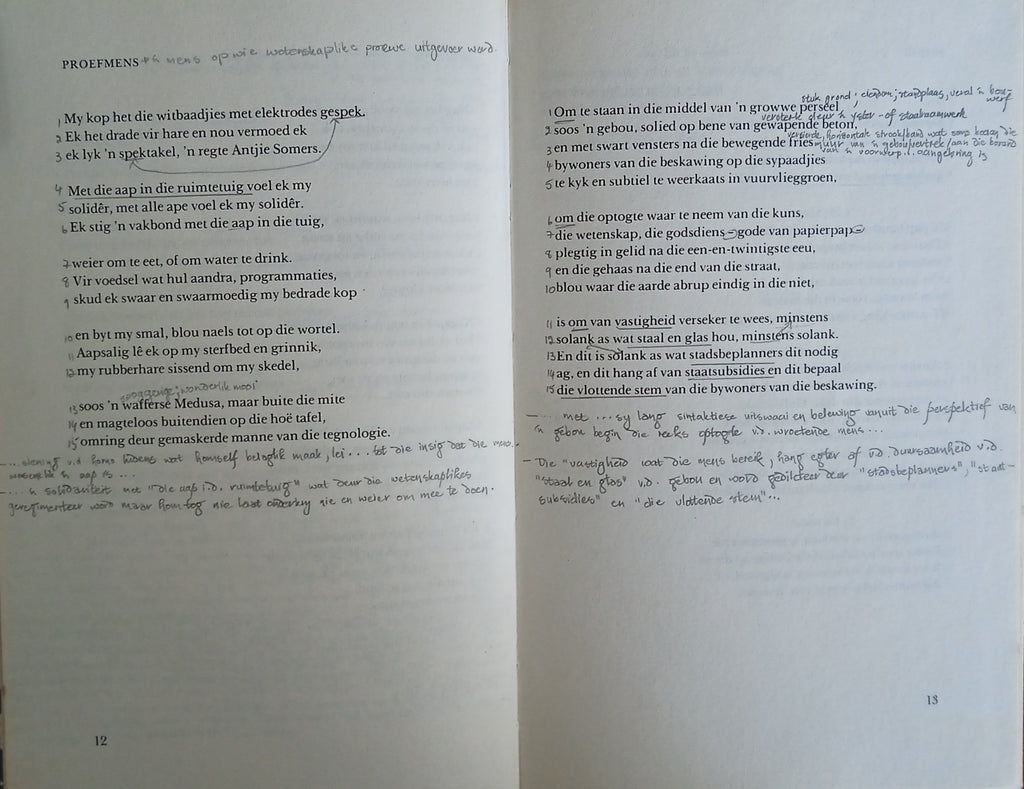 PROEFMENS → 'n mens op wie wetenskaplike proewe uitgevoer word.
1 My kop het die witbaadjies met elektrodes gespek.
2 Ek het drade vir hare en nou vermoed ek
3 ek lyk 'n spektakel, 'n regte Antjie Somers.
4 Met die aap in die ruimtetuig voel ek my
5 solidêr, met alle ape voel ek my solidêr.
6 Ek stig 'n vakbond met die aap in die tuig,
7 weier om te eet, of om water te drink.
8 Vir voedsel wat hul aandra, programmaties,
9 skud ek swaar en swaarmoedig my bedrade kop
10 en byt my smal, blou naels tot op die wortel.
11 Aapsalig lê ek op my sterfbed en grinnik,
12 my rubberhare sissend om my skedel,
soggenaamde; wonderlik mooi
13 soos 'n wafferse Medusa, maar buite die mite
14 en magteloos buitendien op die hoë tafel,
15 omring deur gemaskerde manne van die tegnologie.
... siening v.d. homo ludens wat homself belaglik maak, lei ... tot die insig dat die mens
'n aap is ...
... 'n solidariteit met "die aap i.d. ruimtetuig" wat deur die wetenskaplikes
geregimenteer word maar hom tog nie laat onderkry nie en weier om mee te doen.
12
stuk grond; eiendom; standplaas, veral 'n bouwerf
1 Om te staan in die middel van 'n growwe perseel
versterk deur 'n yster- of staalraamwerk
2 soos 'n gebou, solied op bene van gewapende beton,
versierde, horisontale strook/band wat soms boaan die
3 en met swart vensters na die bewegende fries
muur van 'n gebou/vertrek/aan die borand
van 'n voorwerp aangebring is
4 bywoners van die beskawing op die sypaadjies
5 te kyk en subtiel te weerkaats in vuurvlieggroen,
6 om die optogte waar te neem van die kuns,
7 die wetenskap, die godsdiens – gode van papierpap –
8 plegtig in gelid na die een-en-twintigste eeu,
9 en die gehaas na die end van die straat,
10 blou waar die aarde abrup eindig in die niet,
11 is om van vastigheid verseker te wees, minstens
12 solank as wat staal en glas hou, minstens solank.
13 En dit is solank as wat stadsbeplanners dit nodig
14 ag, en dit hang af van staatsubsidies en dit bepaal
15 die vlottende stem van die bywoners van die beskawing.
– ... met ... sy lang sintaktiese uitswaai en belewing vanuit die perspektief van
'n gebou begin die reeks optogte v.d. wroetende mens ...
– Die "vastigheid wat die mens bereik, hang egter af v.d. duursaamheid v.d.
"staal en glas" v.d. gebou en word gedikteer deur "stadsbeplanners", "staat-
subsidies" en "die vlottende stem"...
13